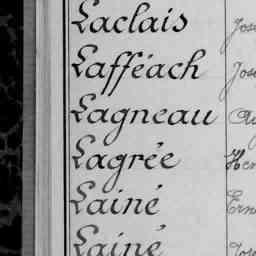 Laclais
Lafféach
Lagneau
Lagrée
Lainé
Lainé